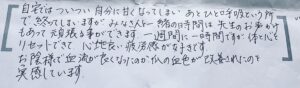 自宅では ついつい自分に甘くなってしまい あとひと呼吸という所
で終ってしまいますが みなさんと一緒の日時間は 先生のお声かけ
もあって頑張る事ができます 一週間に一時間ですが体と心を
リセットできて 心地良い疲労感が好きです
お陰様で血流が良くなったのか 爪の血色が改善されたのを
実感しています。